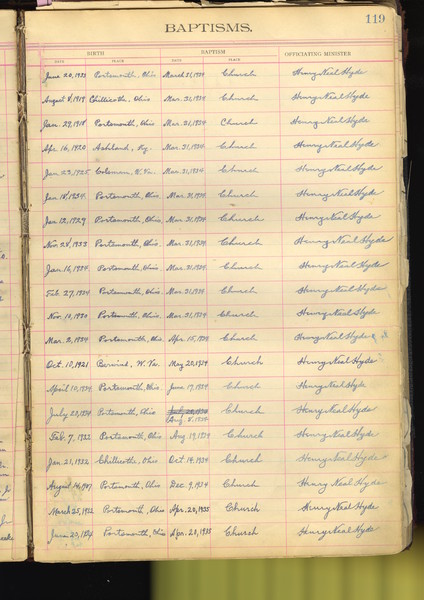 119
BAPTISMS.
BIRTH BAPTISM OFFICIATING MINISTER
DATE PLACE DATE PLACE
June 20, 1933 Portsmouth, Ohio March 31, 1934 Church Henry Neal Hyde
August 8, 1919 Chillicothe, Ohio Mar. 31, 1934 Church Henry Neal Hyde
Jan. 29, 1918 Portsmouth, Ohio Mar. 31, 1934 Church Henry Neal Hyde
Apr. 16, 1920 Ashland, Ky. Mar. 31, 1934 Church Henry Neal Hyde
Jan. 22, 1925 W. Va. Mar. 31, 1934 Church Henry Neal Hyde
Jan 18, 1924 Portsmouth, Ohio Mar. 31, 1934 Church Henry Neal Hyde
Jan 12, 1929 Portsmouth, Ohio Mar. 31, 1934 Church Henry Neal Hyde
Nov. 28, 1933 Portsmouth, Ohio Mar. 31, 1934 Church Henry Neal Hyde
Jan. 16, 1924 Portsmouth, Ohio Mar. 31, 1934 Church Henry Neal Hyde
Feb. 27, 1934 Portsmouth, Ohio Mar. 31, 1934 Church Henry Neal Hyde
Nov. 10, 1930 Portsmouth, Ohio Mar. 31, 1934 Church Henry Neal Hyde
Mar. 2, 1934 Portsmouth, Ohio Apr. 15, 1934 Church Henry Neal Hyde
Oct. 10, 1921 W. Va. May 20, 1934 Church Henry Neal Hyde
April 10, 1934 Portsmouth, Ohio June 17, 1934 Church Henry Neal Hyde
July 20, 1934 Portsmouth, Ohio Church Henry Neal Hyde
Aug. 8, 1934
Feb. 7, 1932 Portsmouth, Ohio Aug 19, 1934 Church Henry Neal Hyde
Jan. 21, 1932 Chillicothe, Ohio Oct 14, 1934 Church Henry Neal Hyde
August 14, 1907 Portsmouth, Ohio Dec. 9, 1934 Church Henry Neal Hyde
March 25, 1932 Portsmouth, Ohio Apr. 20, 1935 Church Henry Neal Hyde
June 20, 1934 Portsmouth, Ohio Apr. 20, 1935 Church Henry Neal Hyde